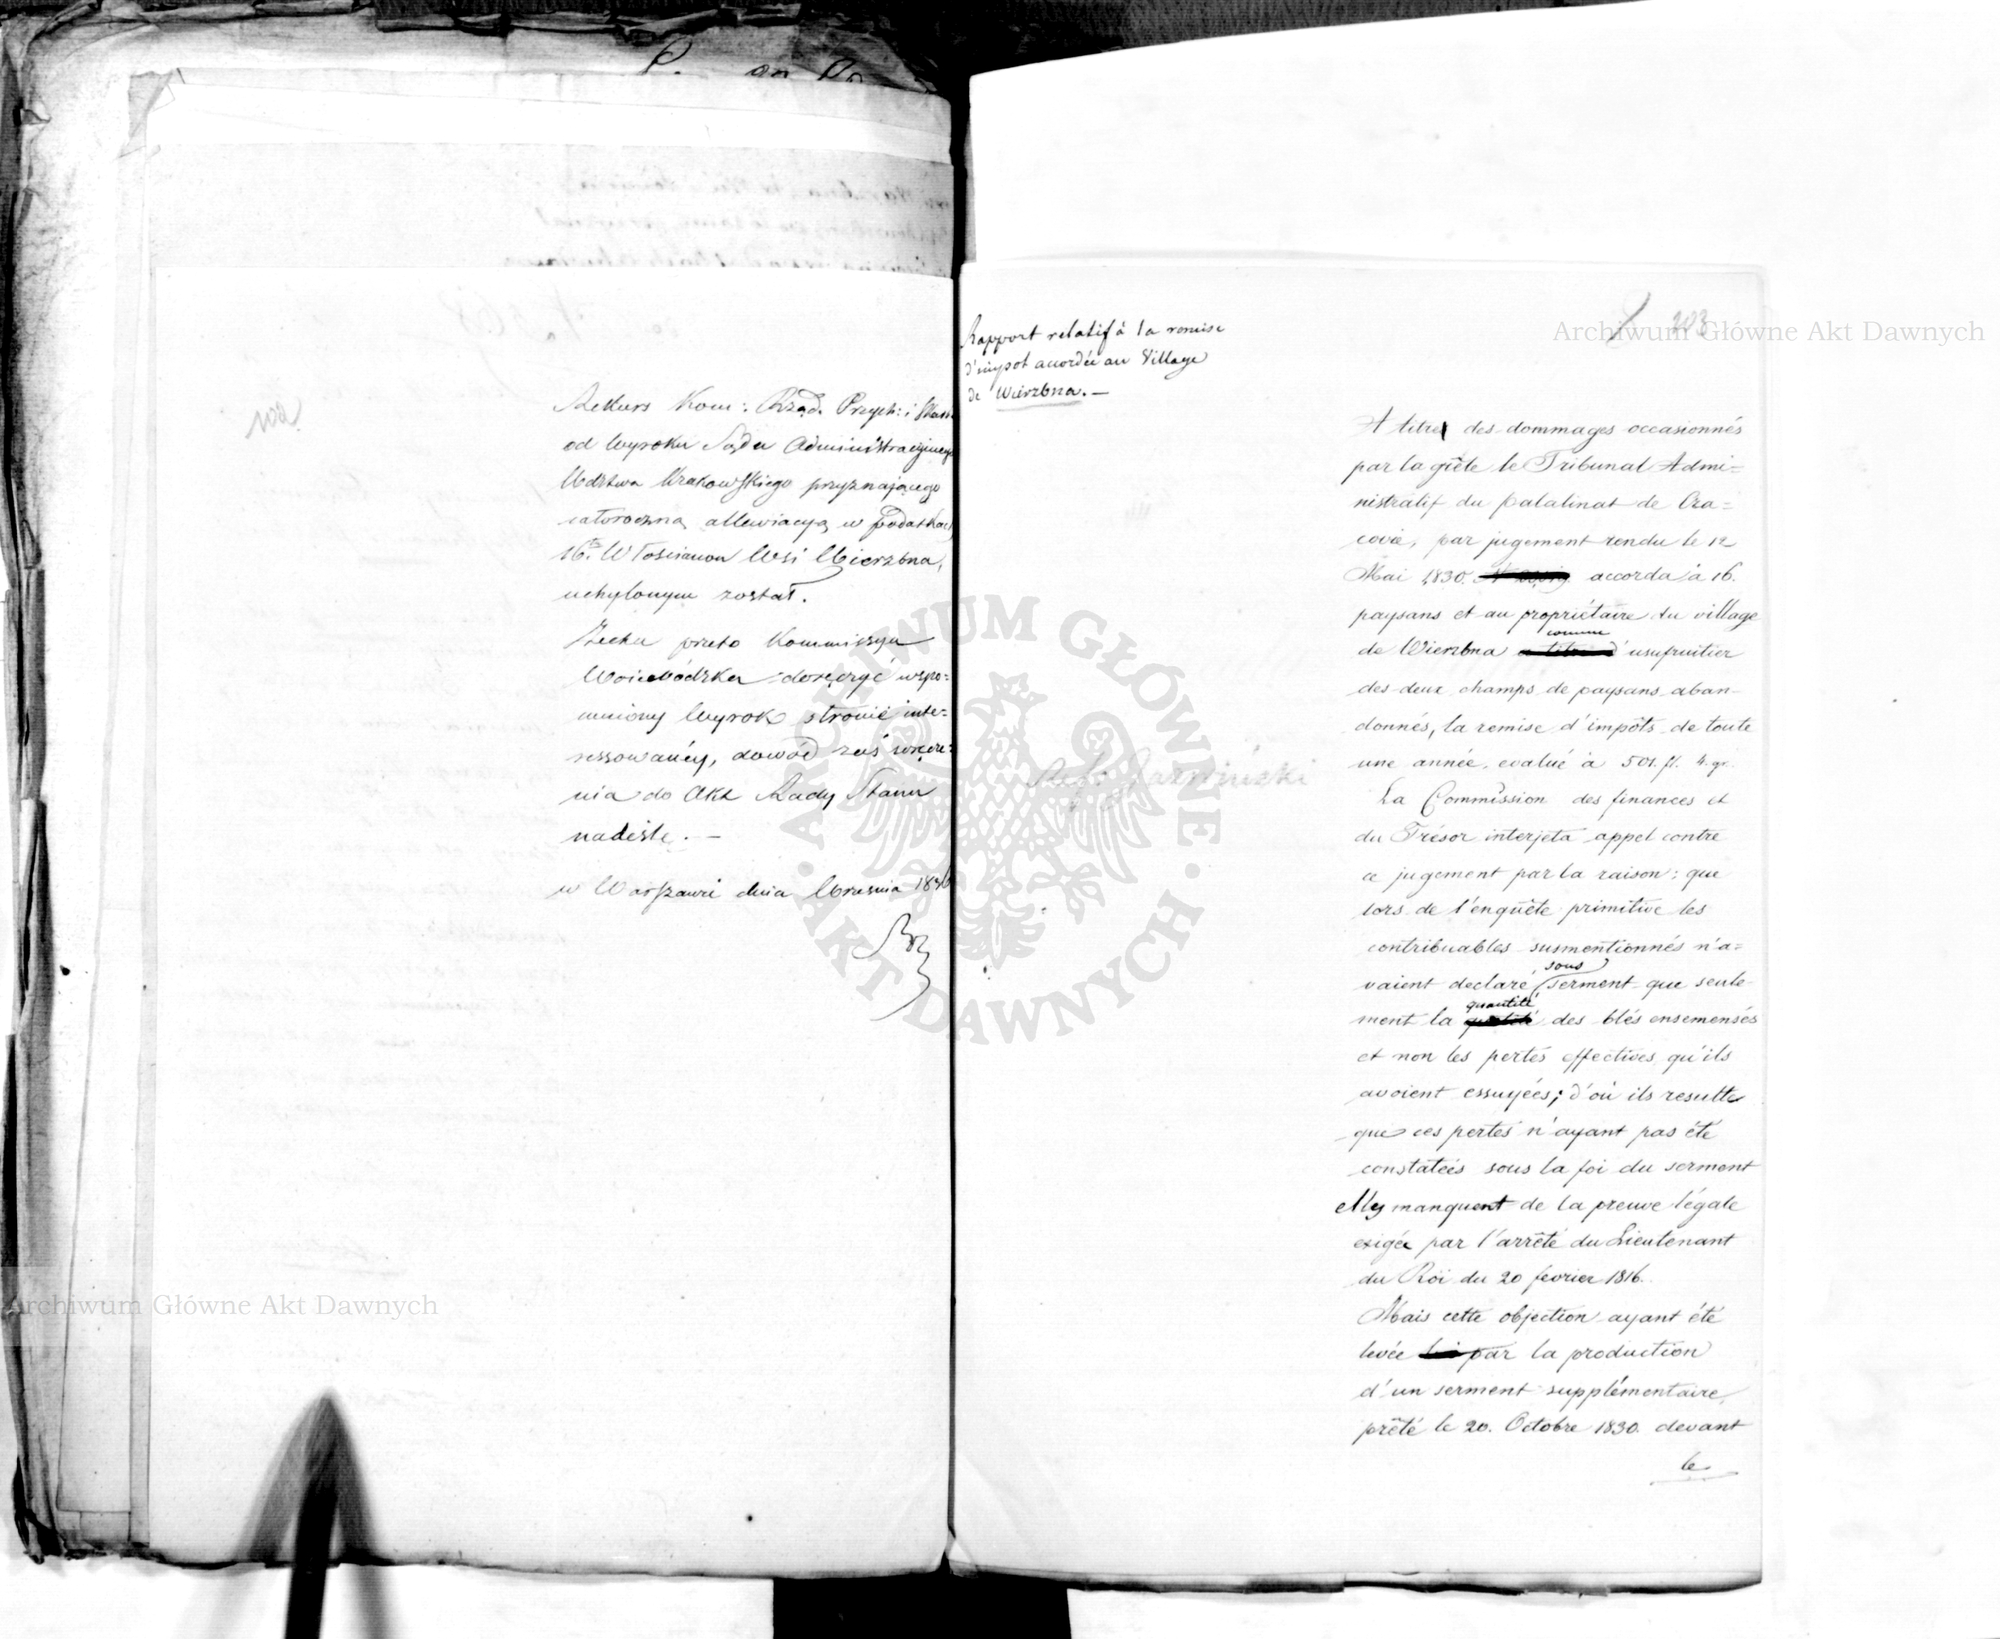 Rekurs Kom: Rząd. Przych: i Skar:
od Wyroku Sądu Administracyinego
Wdztwa Krakowskiego przyznaiącego
całoroczną allewiacyą w podatkach
16tu Włościanom Wsi Wierzbna,
uchylonym został.
Zechce przeto Kommissya
Woiewódzka doręczyć wspo=
mniony Wyrok stronie inte=
ressowanéy, dowód zaś wręcze=
nia do Akt Rady Stanu
nadeśle. —
w Warszawie dnia Września 1836
Rapport relatif à la remise
d'impot accordée au Village
de Wierzbna. —
203
A titre des dommages occasionnés
par la grêle le Tribunal Admi=
nistratif du palatinat de Cra=
covie, par jugement rendu le 12
Mai 1830. accorda à 16.
paysans et au propriétaire du village
de Wierzbna comme usufruitier
des deux champs de paysans aban-
donnés, la remise d'impôts de toute
une année, evalué à 501. fl. 4. gr.
La Commission des finances et
du Trésor interjeta appel contre
ce jugement par la raison: que
lors de l'enquête primitive les
contribuables susmentionnés n'a=
vaient declaré sous serment que seule-
ment la quantité des blés ensemensés
et non les pertes effectives qu'ils
avoient essuyées; d'où ils resulte
que ces pertes n'ayant pas été
constatées sous la foi du serment
elles manquent de la preuve légale
exigée par l'arrêté du Lieutenant
du Roi du 20 fevrier 1816.
Mais cette objection ayant été
levée par la production
d'un serment supplémentaire,
prêté le 20. Octobre 1830. devant
le
Archiwum Główne Akt Dawnych
Archiwum Główne Akt Dawnych
ARCHIWUM GŁÓWNE · AKT DAWNYCH ·